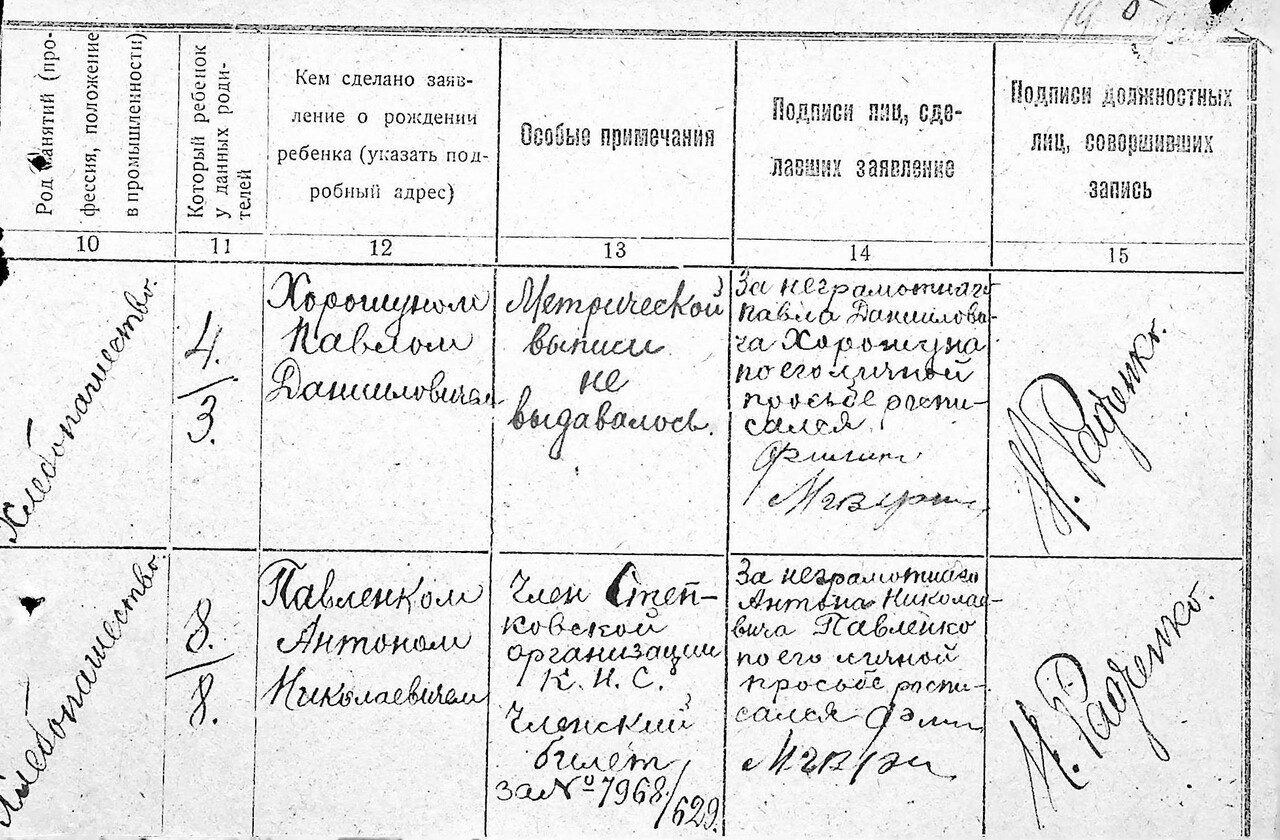 Род занятий (про-
фессия, положение
в промышленности)
Который ребенок
у данных роди-
телей
Кем сделано заяв-
ление о рождении
ребенка (указать под-
робный адрес)
Особые примечания
Подписи лиц, сде-
лавших заявление
Подписи должностных
лиц, совершивших
запись
10
11
12
13
14
15
Хлебопашество.
4.
3.
Хорошуном
Павлом
Данииловичем
Метрической
выписи
не
выдавалось.
За неграмотнаго
Павла Даниилови-
ча Хорошуна
по его личной
просьбе распи-
сался
Н. Радченко.
Хлебопашество.
8.
8.
Павленком
Антоном
Николаевичем
Член Степ-
ковской
организации
К.Н.С.
Членский
билет
за № 7968/629.
За неграмотнаго
Антона Николае-
вича Павленко
по его личной
просьбе распи-
сался
Н. Радченко.